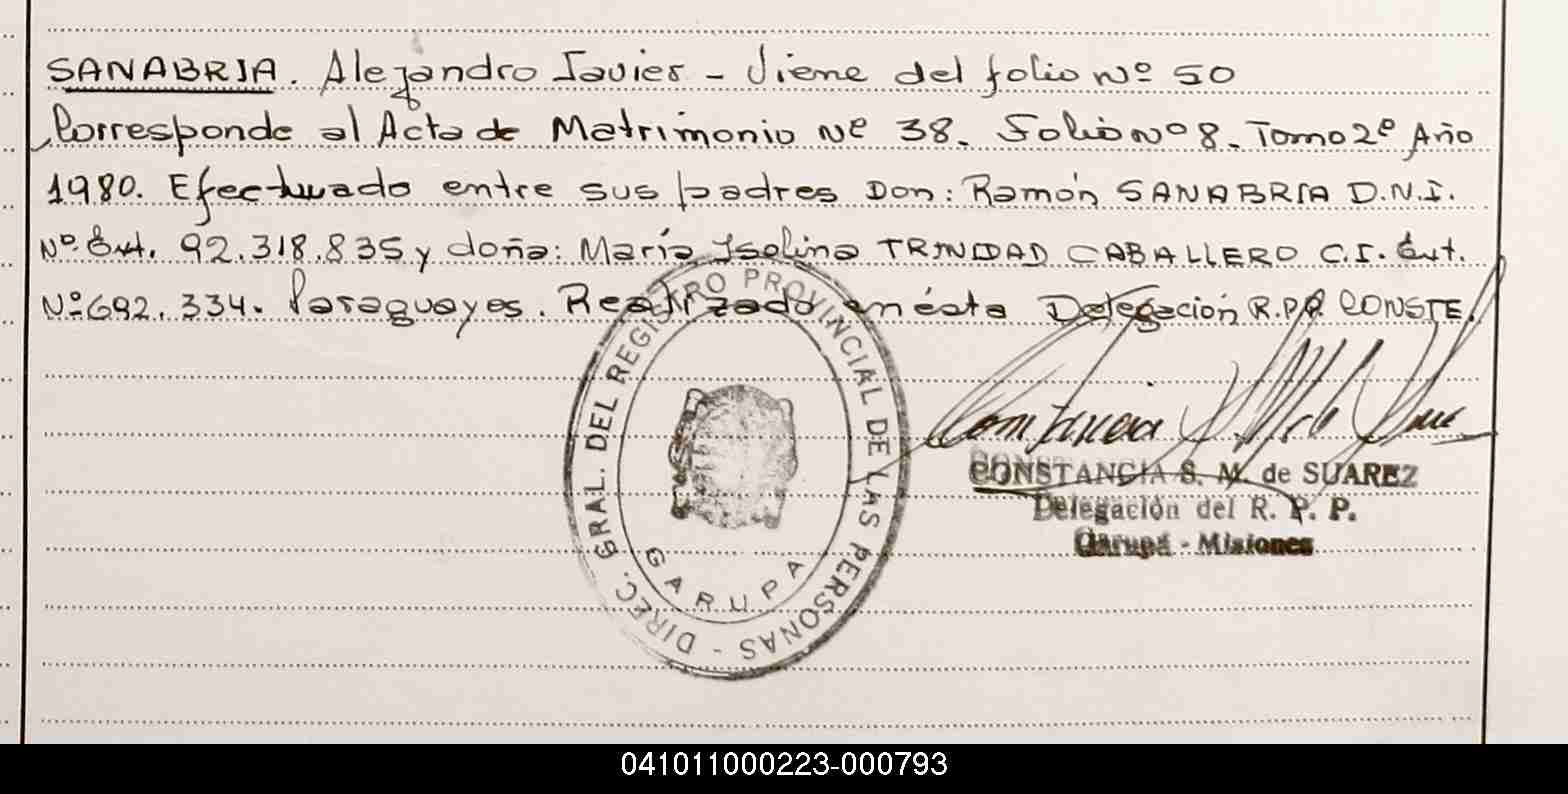 SANABRIA. Alejandro Javier - Viene del folio Nº 50
Corresponde al Acta de Matrimonio Nº 38. Folio Nº 8. Tomo 2º Año
1980. Efectuado entre sus padres Don: Ramón SANABRIA D.N.I.
Nº Ext. 92.318.835 y doña: María Isolina TRINIDAD CABALLERO C.I. Ext.
Nº 692.334. Paraguayos. Realizado en ésta Delegación R.P.P. CONSTE.
DIREC. GRAL. DEL REGISTRO PROVINCIAL DE LAS PERSONAS -
GARUPA
CONSTANCIA S. M. de SUAREZ
Delegación del R. P. P.
Garupá - Misiones
041011000223-000793